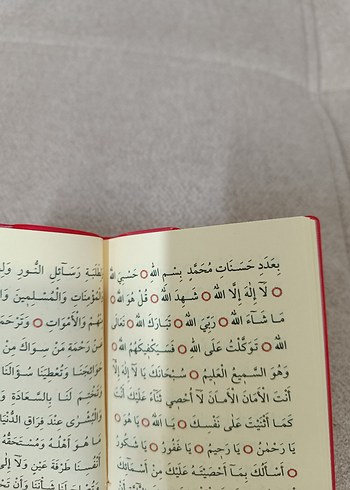 بِعَدَدِ حَسَنَاتِ مُحَمَّدٍ بِسْمِ اللّٰهِ ۞ حَسْبِىَ اللّٰهُ
۞ لَآ اِلٰهَ اِلَّا اللّٰهُ ۞ شَهِدَ اللّٰهُ ۞ قُلْ هُوَ اللّٰهُ ۞
مَا شَآءَ اللّٰهُ ۞ رَبِّىَ اللّٰهُ ۞ تَبَارَكَ اللّٰهُ ۞ تَعَالَى
اللّٰهُ ۞ تَوَكَّلْتُ عَلَى اللّٰهِ ۞ فَسَيَكْفِيكَهُمُ اللّٰهُ
وَهُوَ السَّمِيعُ الْعَلِيمُ ۞ سُبْحَانَكَ يَا لَآ اِلٰهَ اِلَّآ
اَنْتَ الْاَمَانَ الْاَمَانَ لَآ اُحْصِي ثَنَآءً عَلَيْكَ اَنْتَ
كَمَا اَثْنَيْتَ عَلٰى نَفْسِكَ ۞ يَا اَللّٰهُ ۞ يَا هُوَ ۞
يَا رَحْمٰنُ ۞ يَا رَحِيمُ ۞ يَا غَفُورُ ۞ يَا شَكُورُ
۞ اَسْأَلُكَ بِمَآ اَحْصَيْتَهُ عَلَيْكَ مِنْ اَسْمَآئِكَ
طَلَبَةِ رَسَآئِلِ النُّورِ
وَالْمُؤْمِنَاتِ وَالْمُسْلِمِينَ
مِنْهُمْ وَالْاَمْوَاتِ ۞ وَتَرْحَمَ
عَنْ رَحْمَةِ مَنْ سِوَاكَ مِنْ
حَوَآئِجَنَا وَتُعْطِيَنَا سُؤَالَنَا
وَتَخْتِمَ لَنَا بِالسَّعَادَةِ
وَالْبُشْرٰى عِنْدَ فِرَاقِ الدُّنْيَا
مَا هُوَ اَهْلُهُ وَمُسْتَحَقُّهُ
اَنْفُسِنَا طَرْفَةَ عَيْنٍ وَلَآ
لَنَا شَأْنَنَا وَاَنْ